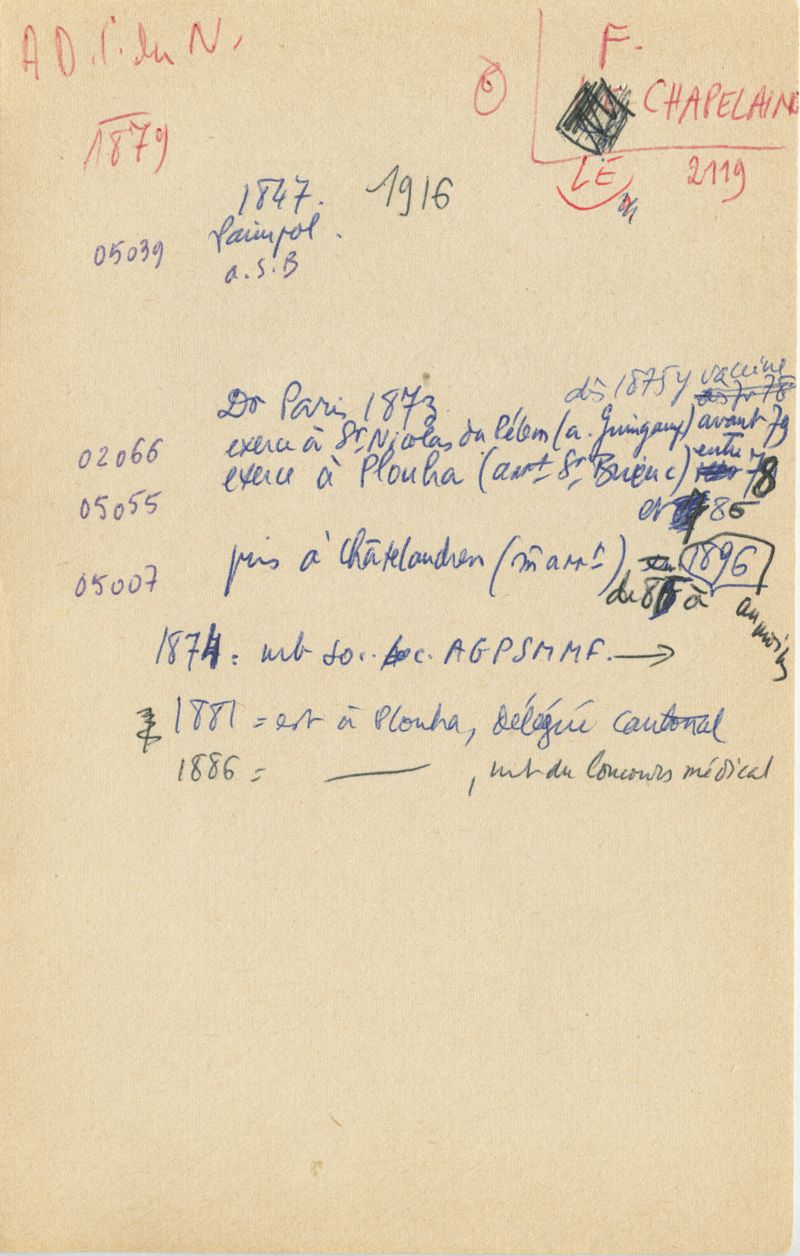 A D. C. du N.
F.
6
CHAPELAIN
1879
LE 2119
1847. 1916
05039 Paimpol.
a. S. B
dès 1875 y vaccine
Dr Paris 1873
02066 exerce à St Nicolas du Pélem (a. Guingamp) avant 79
05055 exerce à Plouha (arrt St Brieuc) entre 78
et 85
05007 puis à Châtelaudren (m arrt), 1896
de 85 à au moins
1874 = mb so. loc. AGPSMMF. →
1881 = est à Plouha, Délégué cantonal
1886 = —— , mb du Concours médical